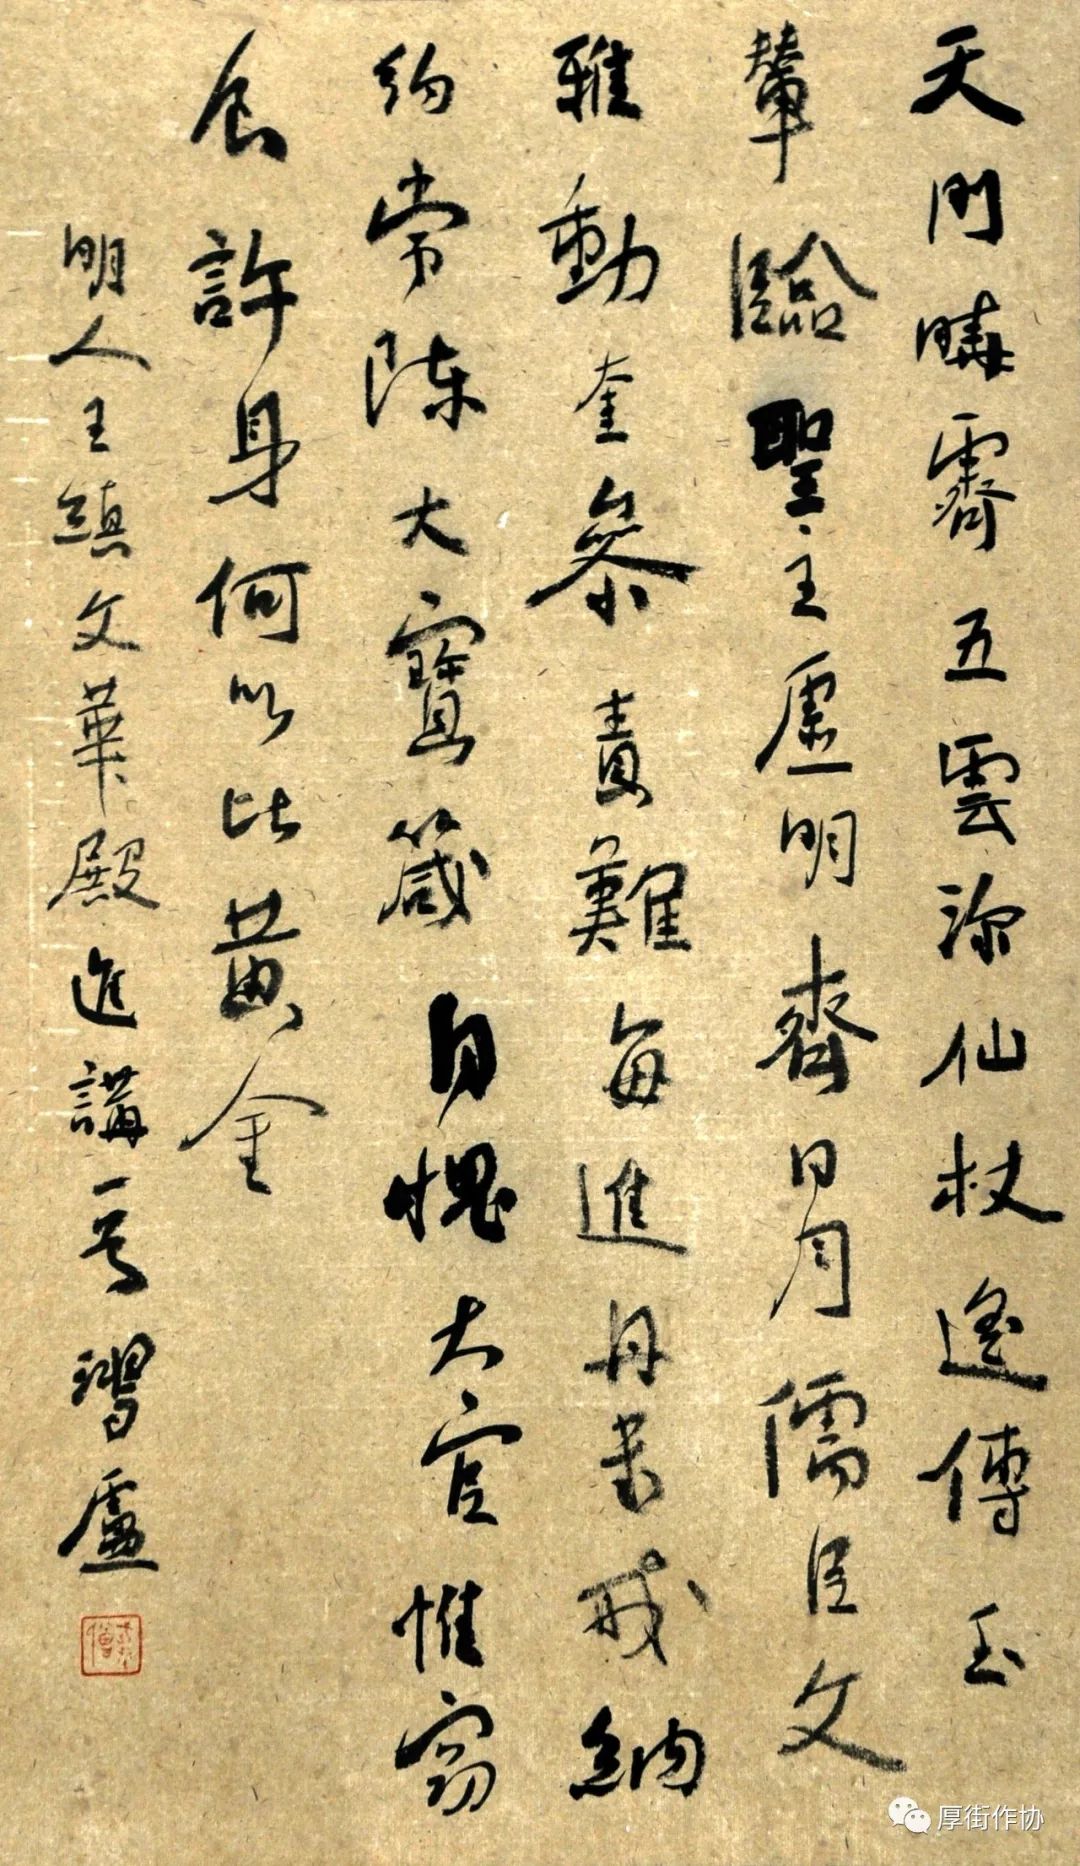 天門晴霽五雲深仙杖遙傳玉
輦臨聖主虛明齊日月儒臣文
雅動奎參責難每進丹書戒納
約常陳大寶箴自愧大官惟竊
食許身何以比黃金
明人王縝文華殿進講一首廬
厚街作协